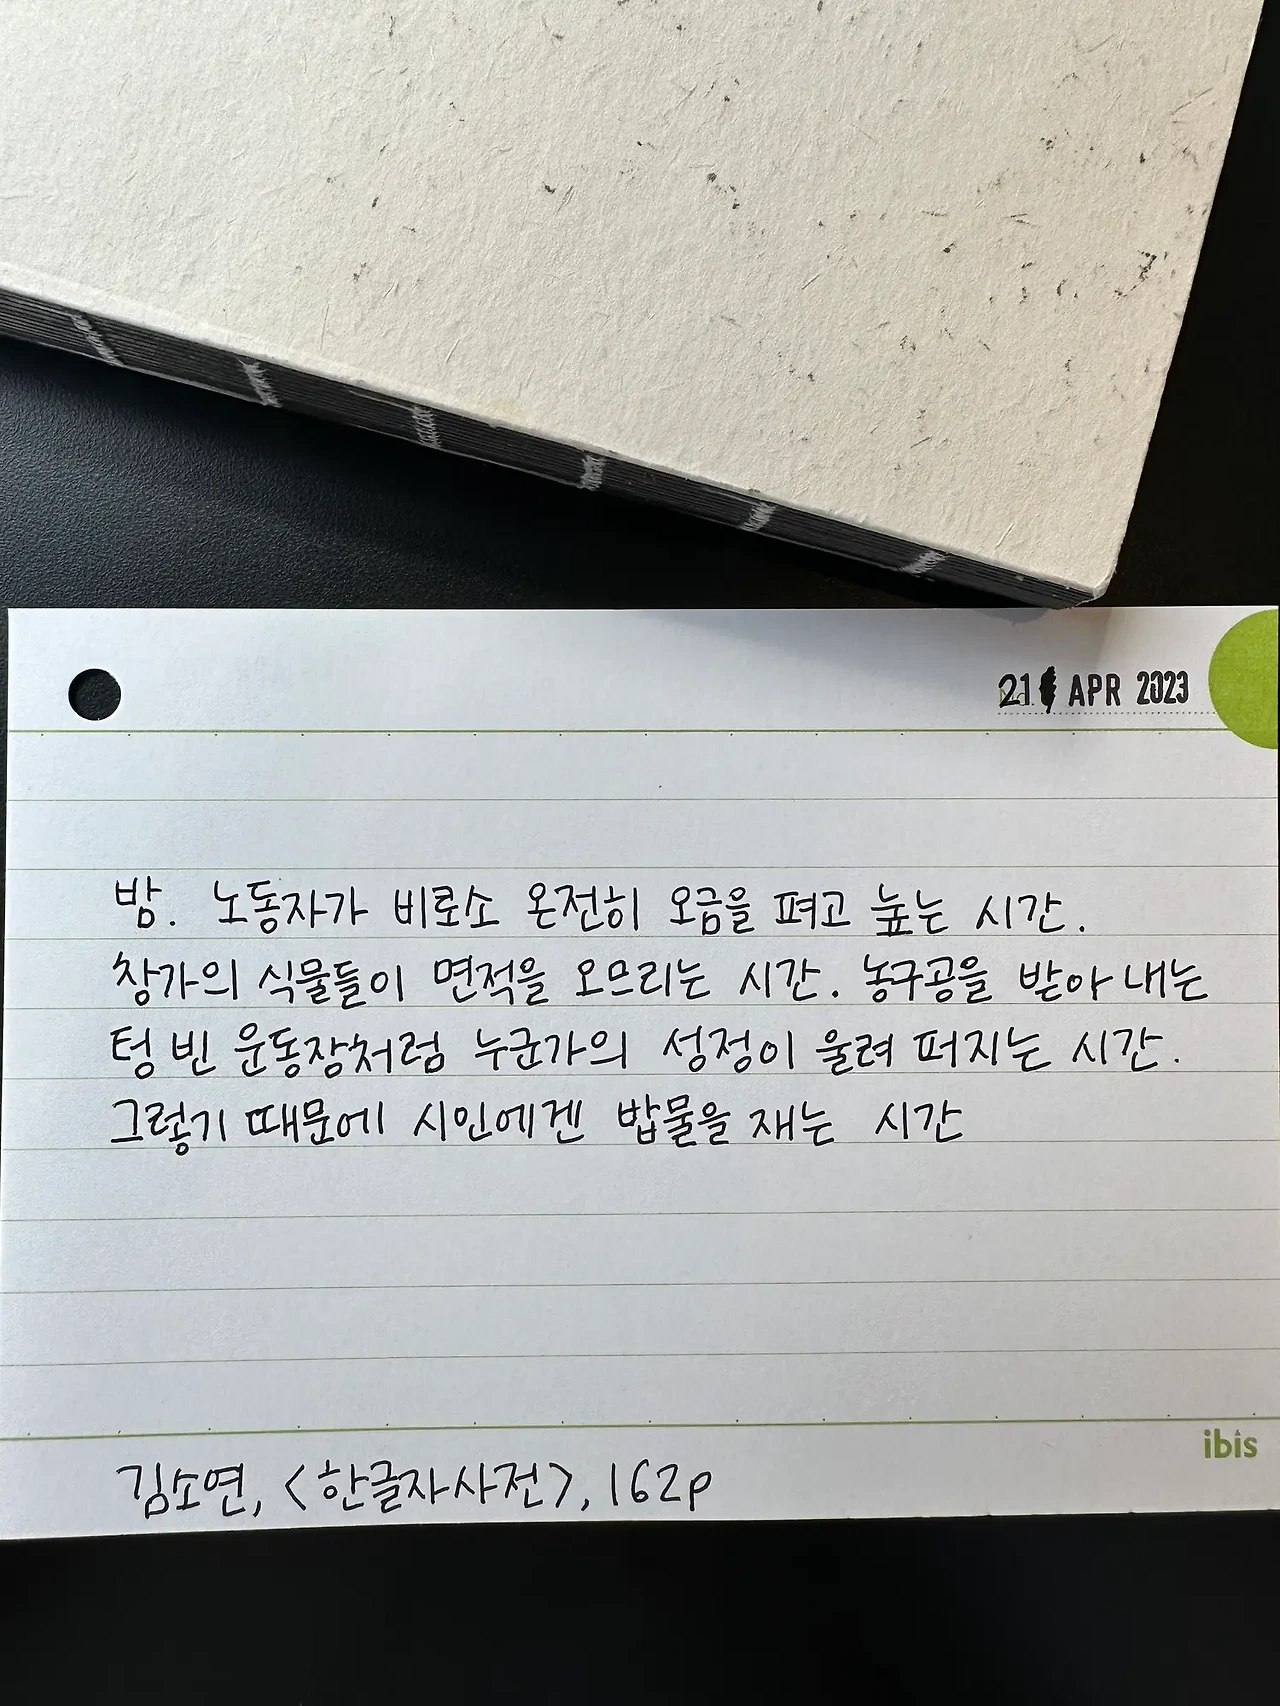 21 APR 2023
밤. 노동자가 비로소 온전히 오금을 펴고 눞는 시간.
창가의 식물들이 면적을 오므리는 시간. 농구공을 받아 내는
텅 빈 운동장처럼 누군가의 성정이 울려 퍼지는 시간.
그렇기 때문에 시인에겐 밥물을 재는 시간
ibis
김소연, <한글자사전>, 162p